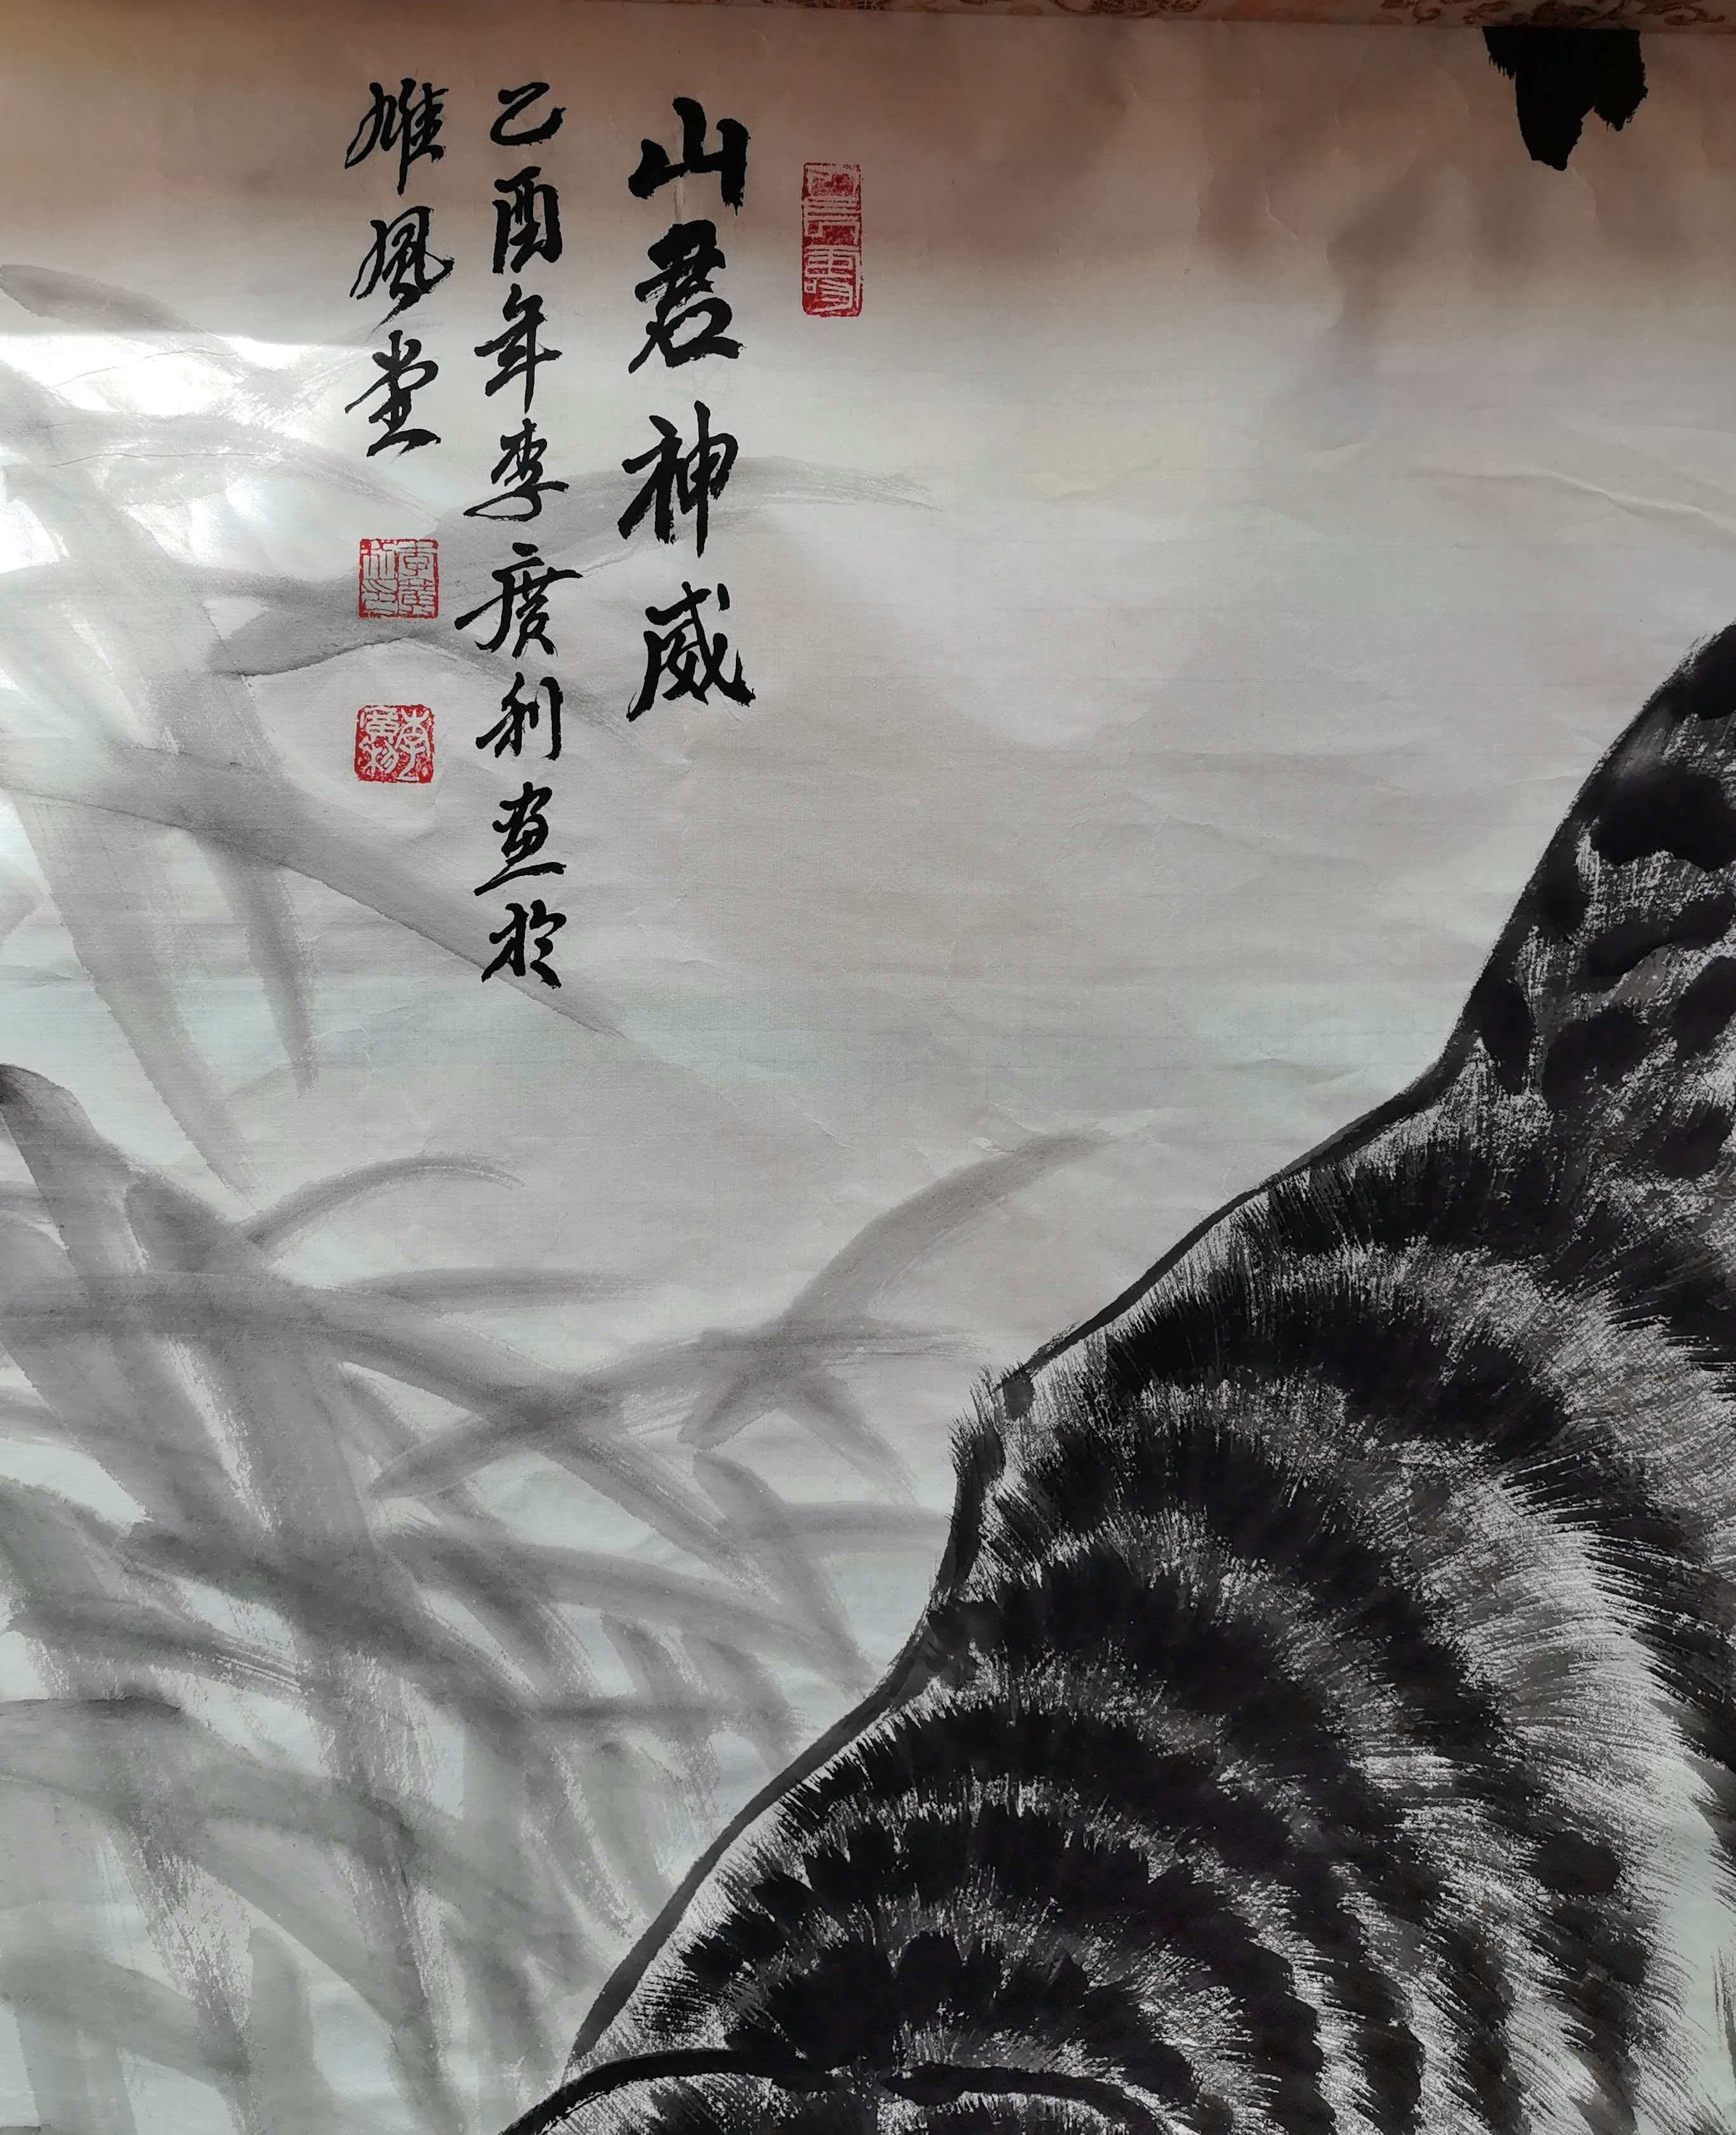 山君神威
乙酉年李广利画於
雄风堂